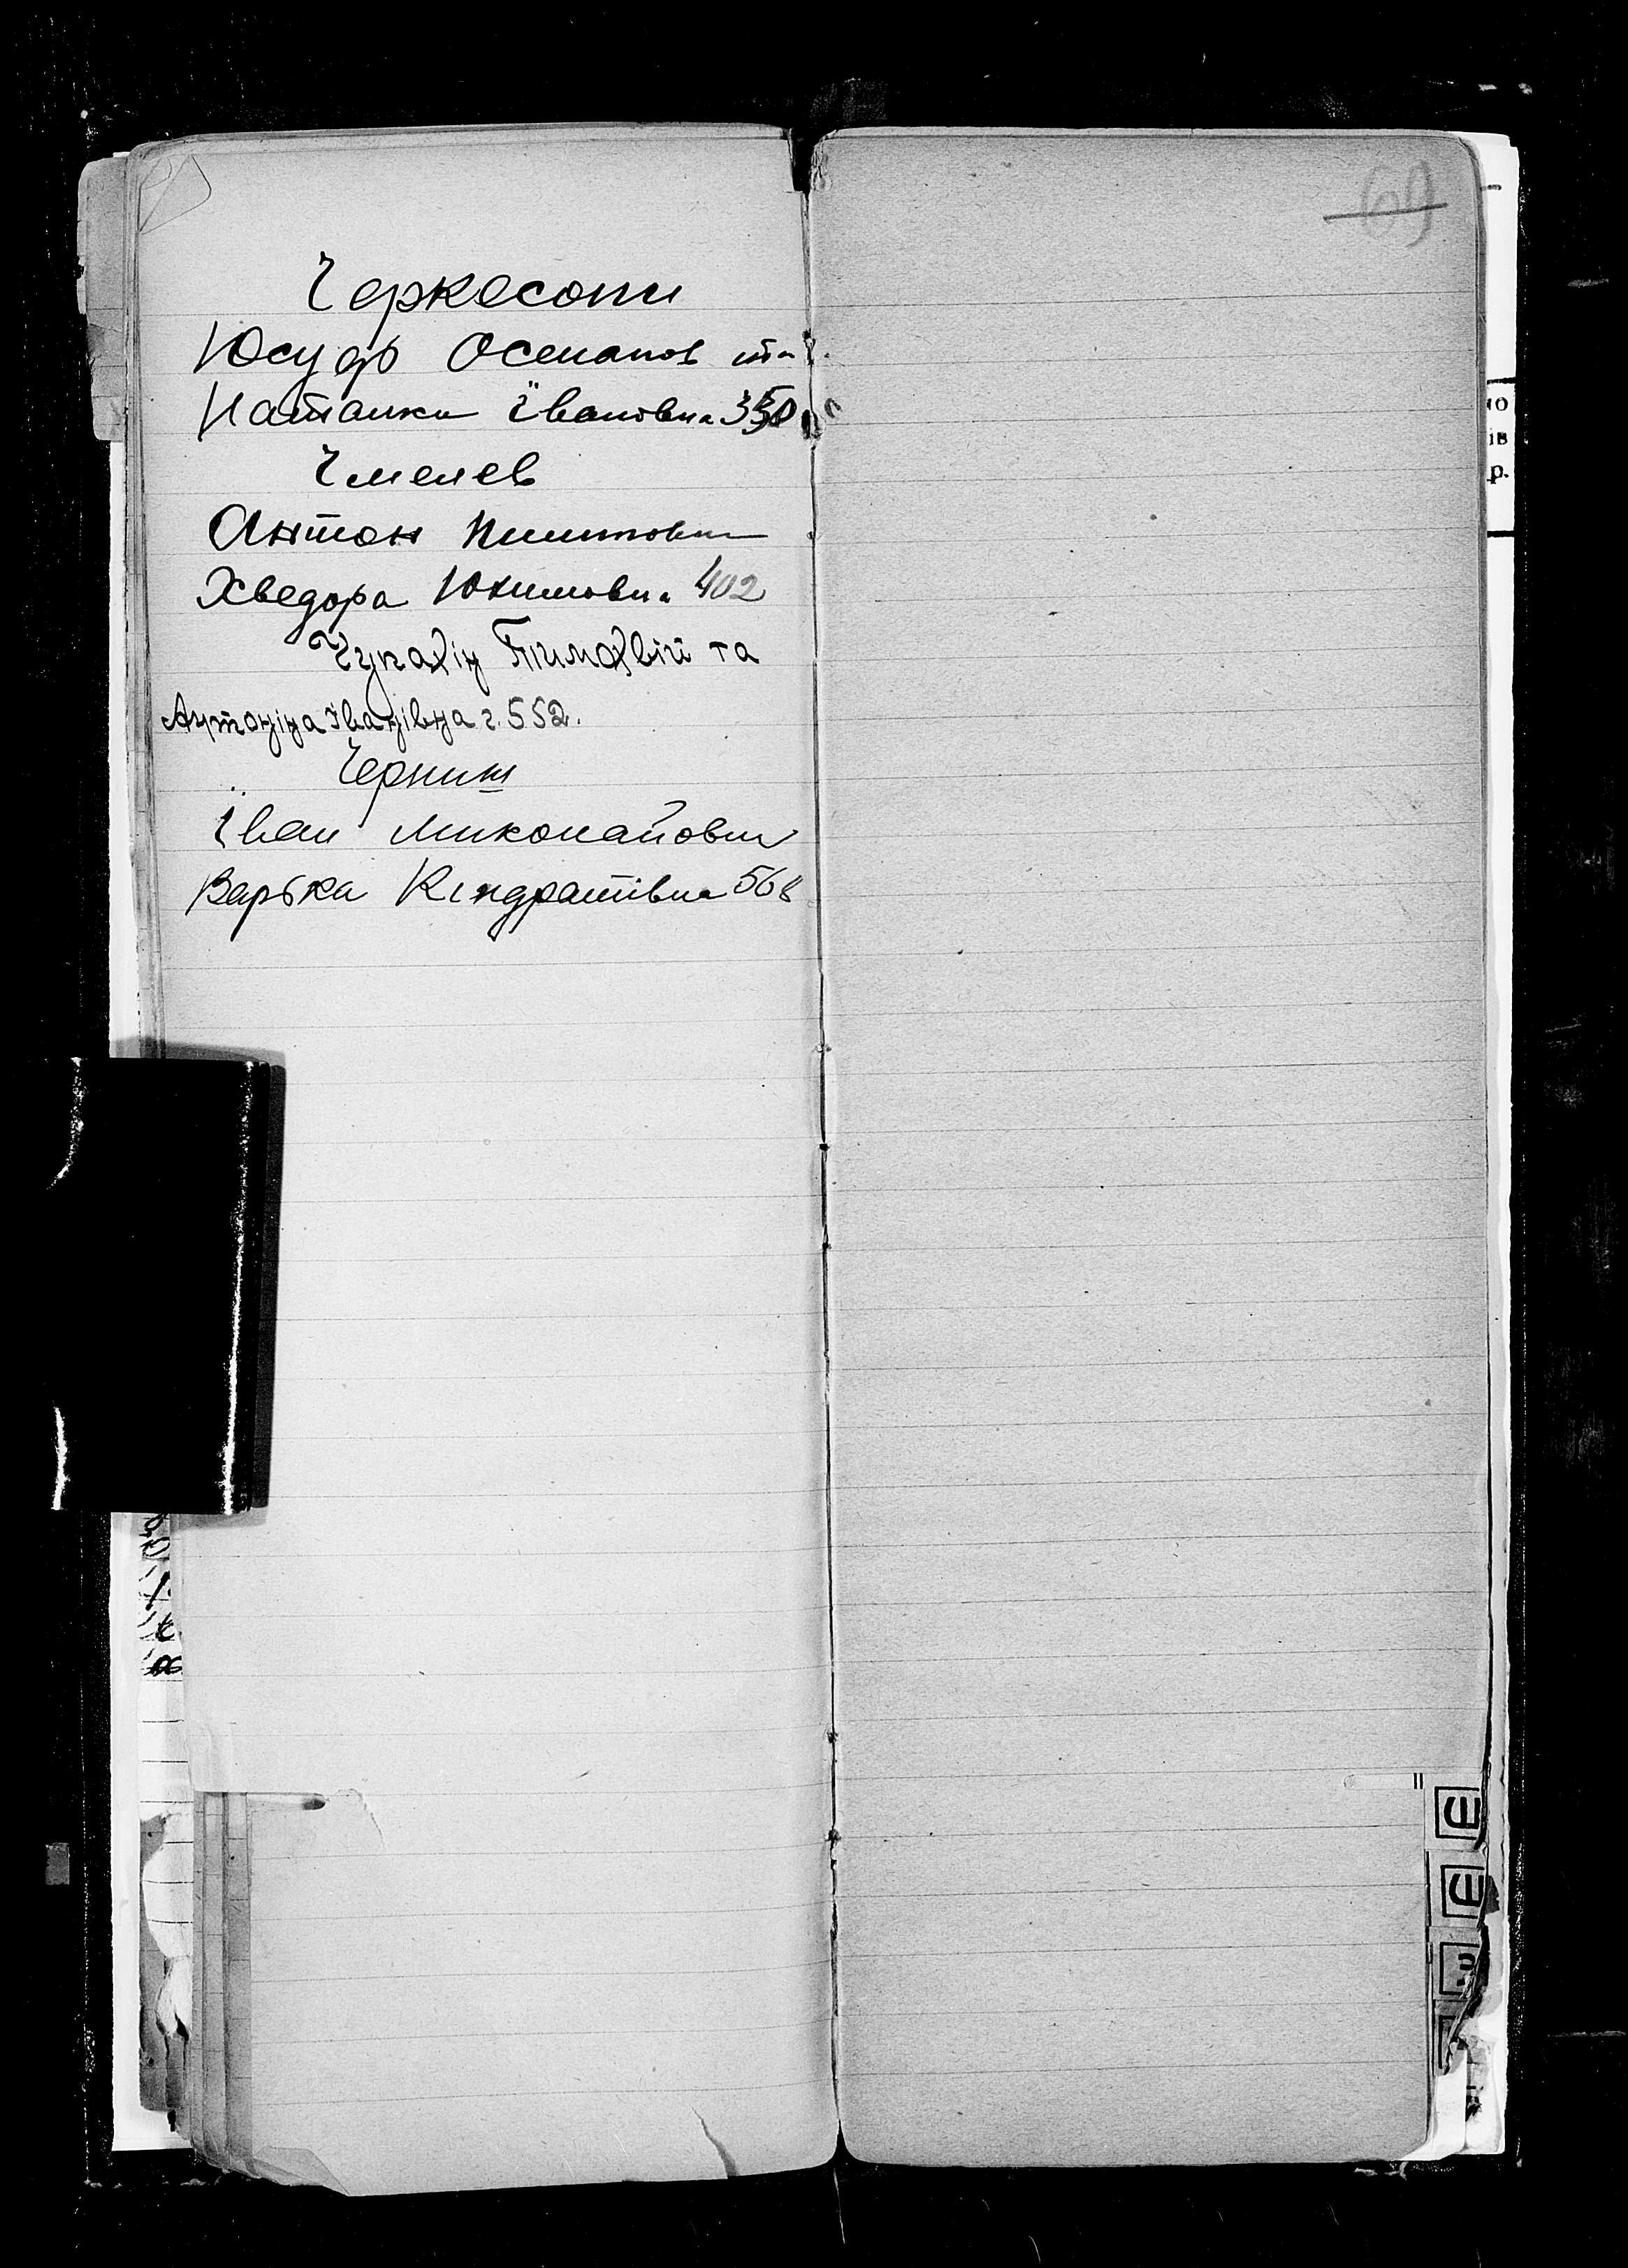 Черкесови
Юсуф Османов та
Наталки Ївановна 350
Чмелев
Антон
Хведора Юхимовна 402
Тимофвій та
Антоніна Іванівна г. 552.
Черниш
Їван Миколайович
Варька Кіндратівна 568
69
но
ів
р.